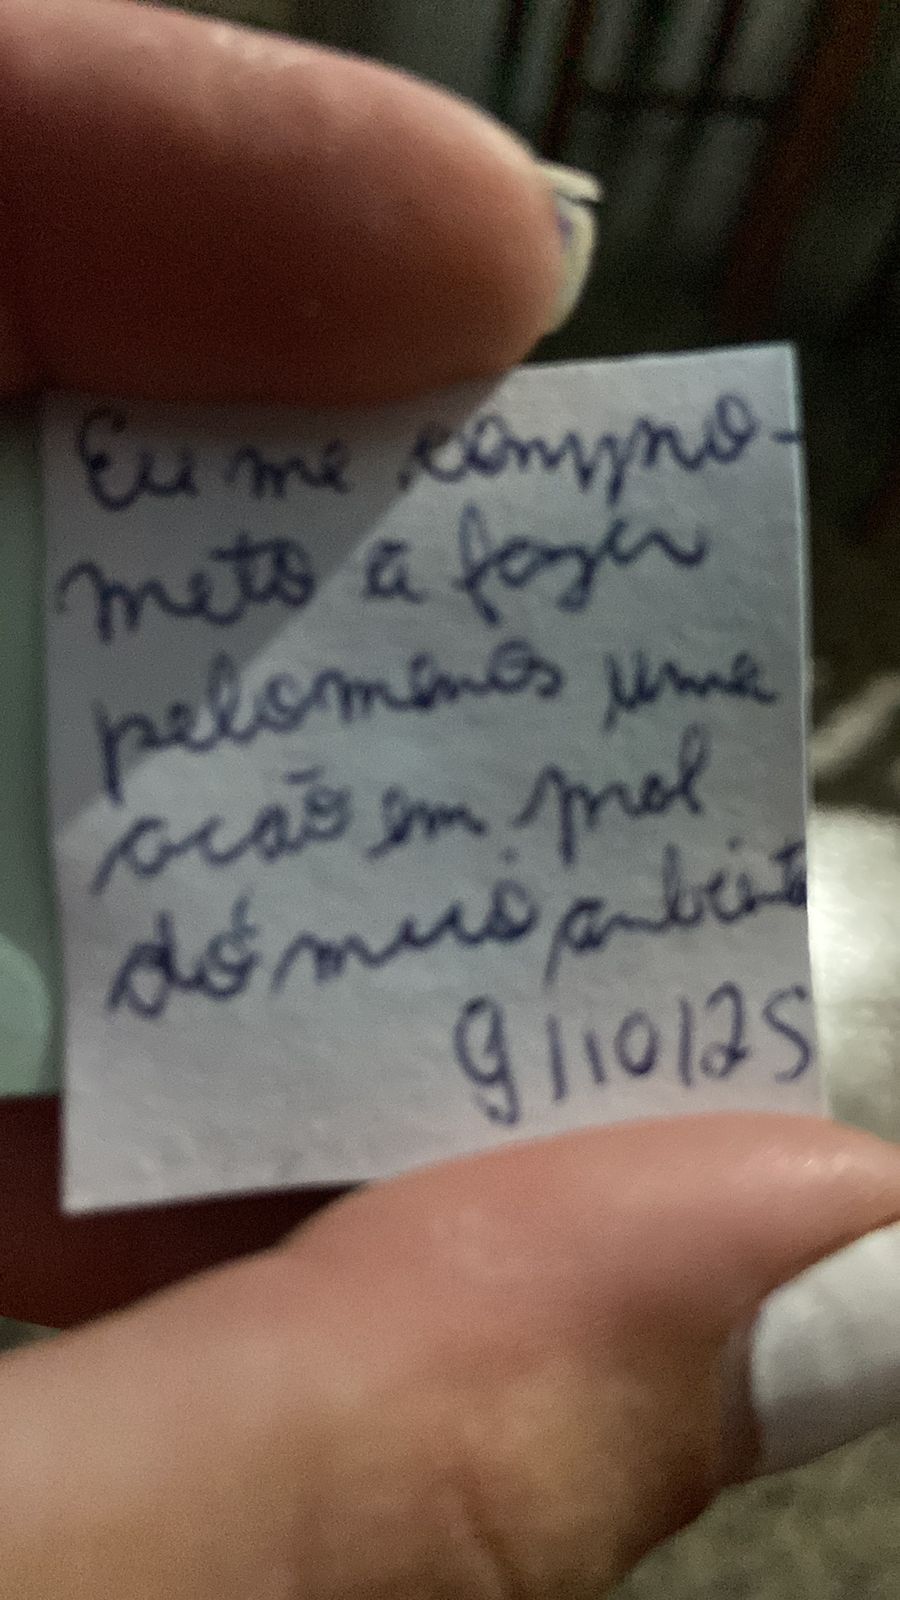 Eu me compro-
meto a fazer
pelo menos uma
acão em prol
do meio ambiente
9/10/25